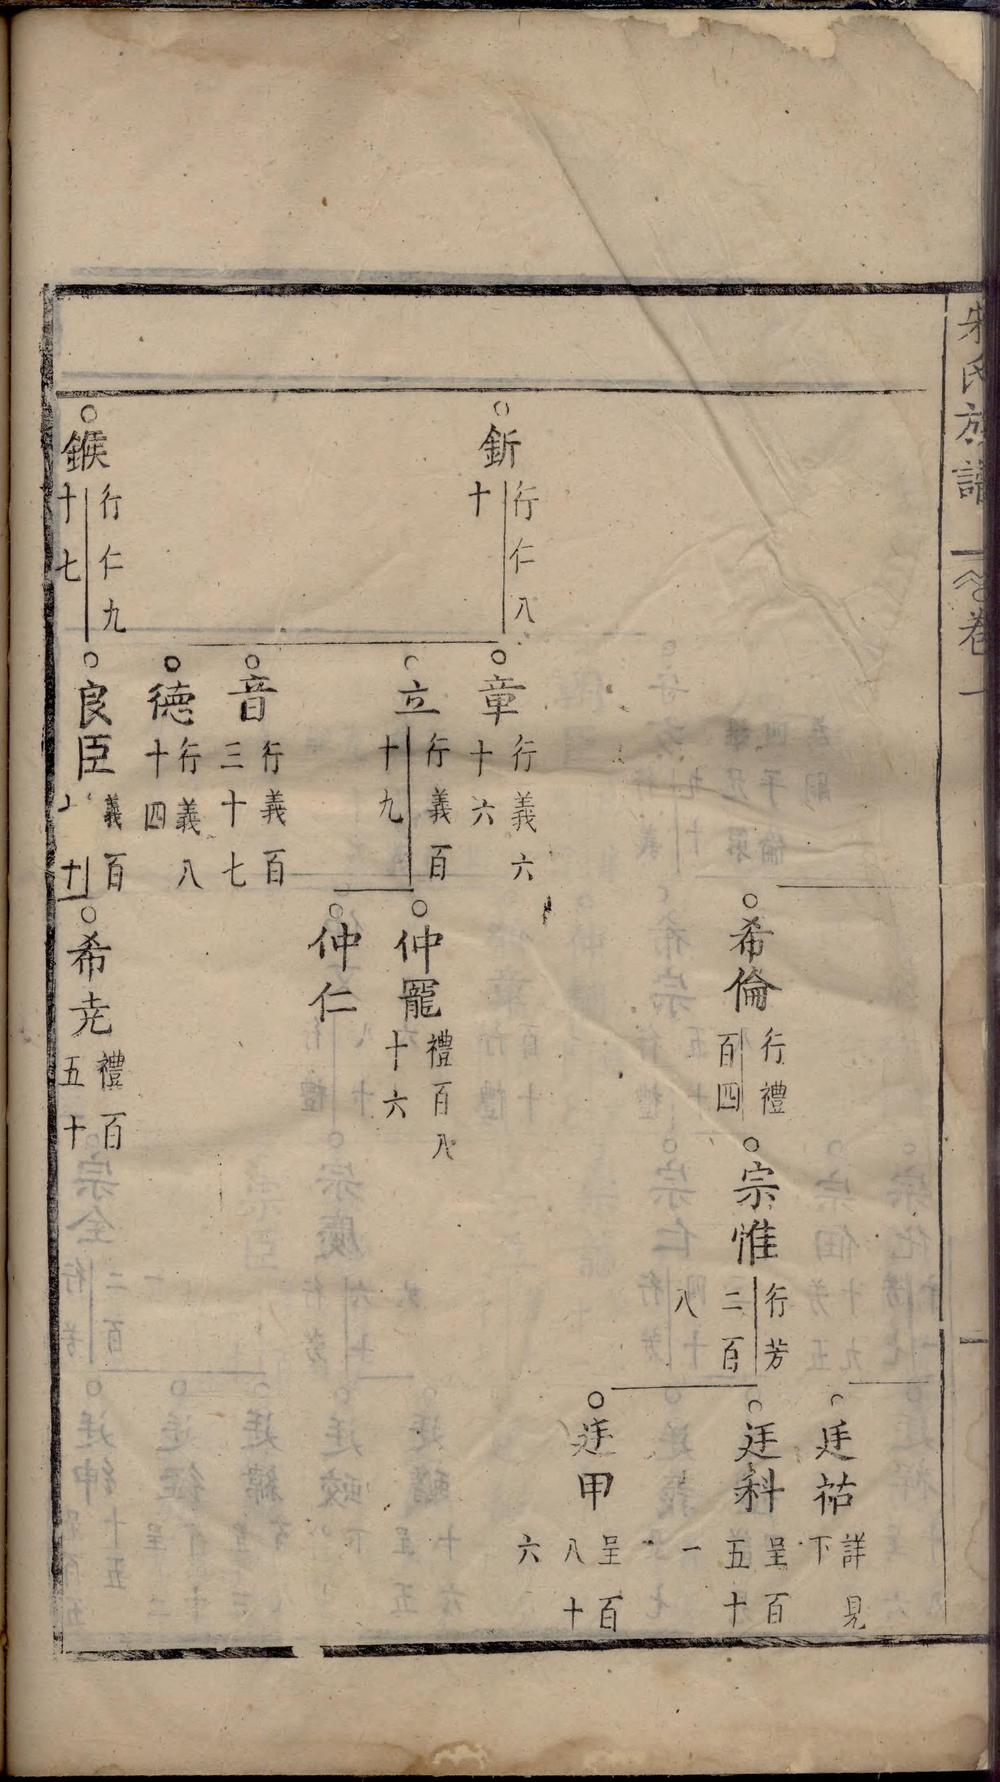 宋氏族譜
卷一
一
釿 行仁八十
鍭 行仁九十七
章 行義六十六
立 行義百十九
音 行義百三十七
德 行義八十四
良臣 義百
希倫 行禮百四
仲寵 禮百八十六
仲仁
希尭 禮百五十
宗惟 行芳二百八
廷祐 詳見下
廷科 呈百五十一
廷甲 呈百八十六